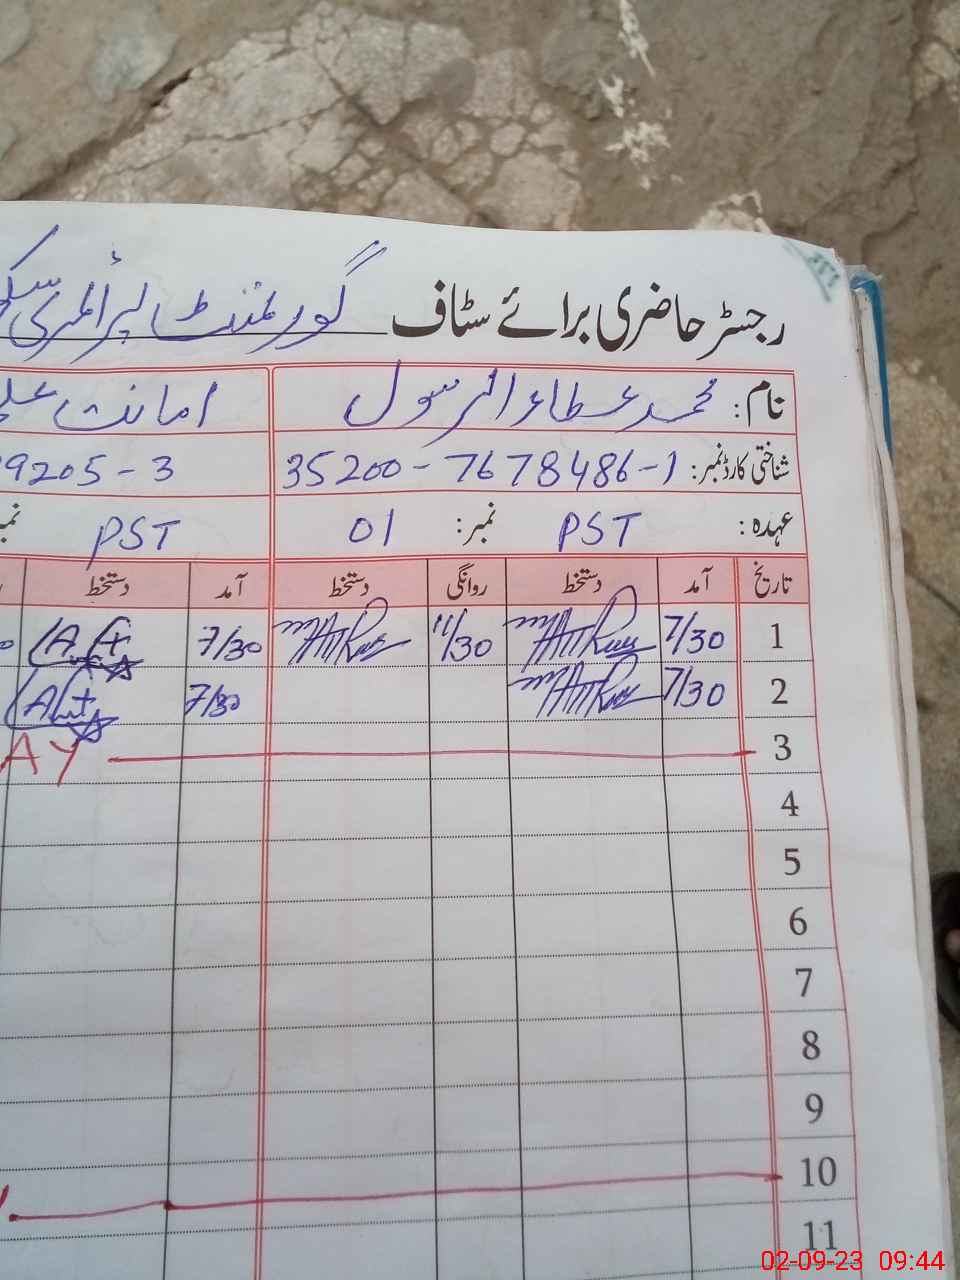 رجسٹر حاضری برائے سٹاف گورنمنٹ پرائمری
نام: محمد عطاء الرسول امانت علی
شناختی کارڈ نمبر: 35200-7678486-1 9205-3
عہدہ: PST نمبر: 01 PST
تاریخ آمد دستخط روانگی دستخط آمد دستخط
1 7/30 11/30 7/30
2 7/30 7/30
3 AY
4
5
6
7
8
9
10
11
02-09-23 09:44